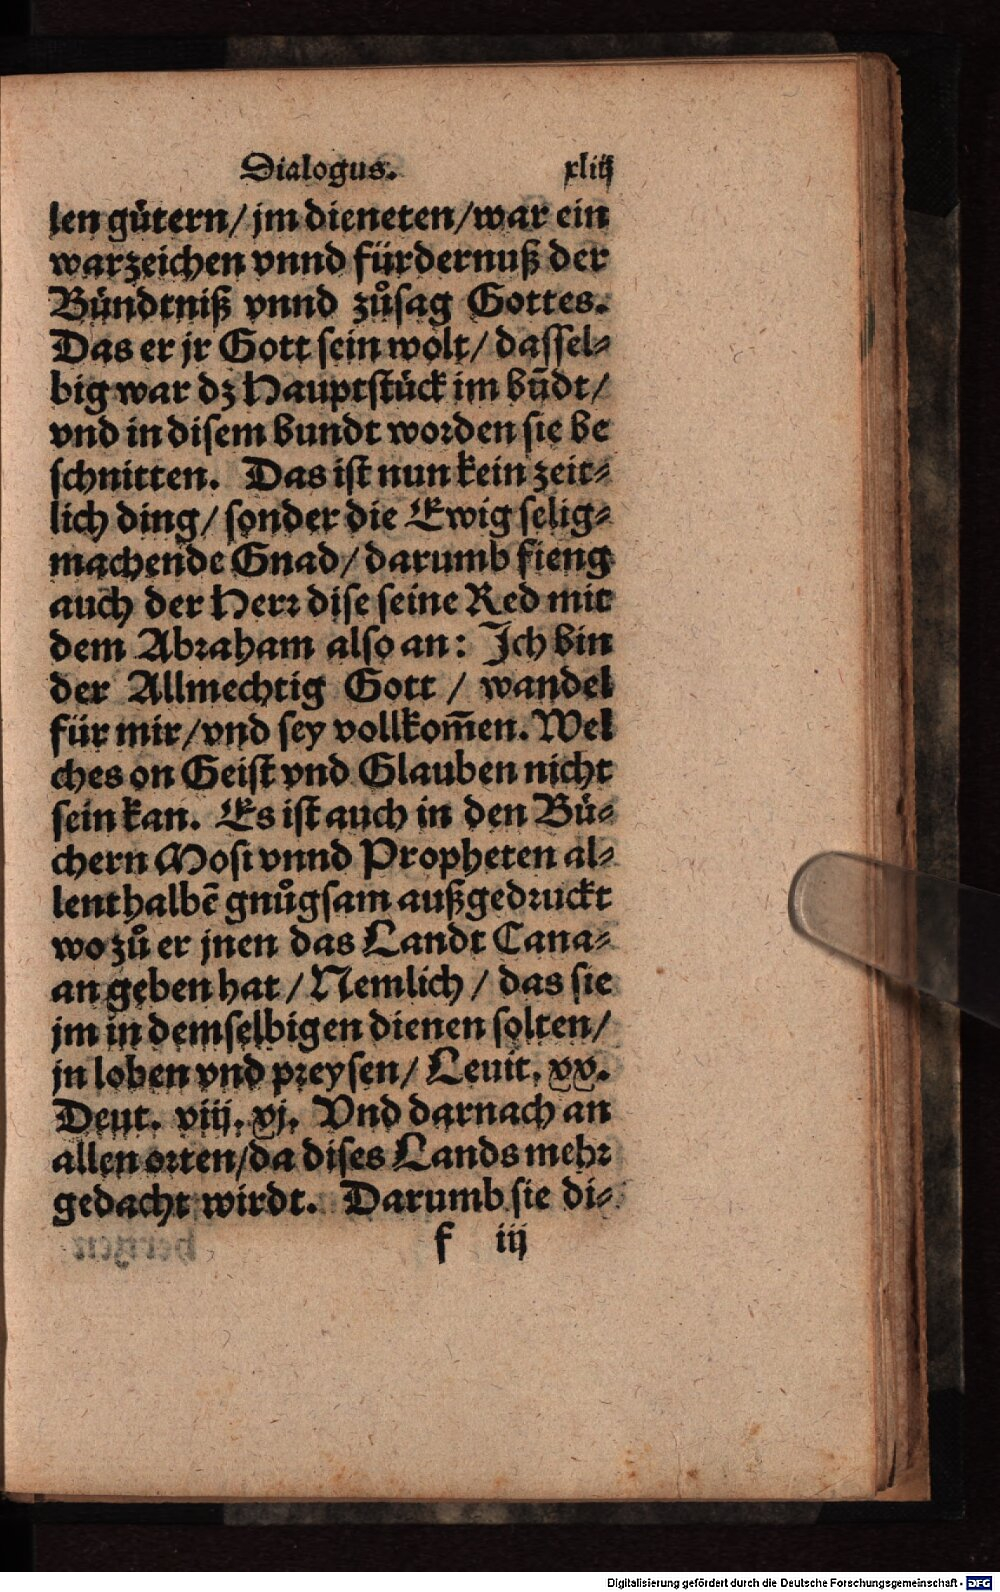 Dialogus. xliij
len gütern/ jm dieneten/ war ein
warzeichen vnnd fürdernuß der
Bündtniß vnnd zůsag Gottes.
Das er jr Gott sein wolt/ dassel⸗
big war dz Hauptstück im bũdt/
vnd in disem bundt worden sie be
schnitten. Das ist nun kein zeit⸗
lich ding/ sonder die Ewig selig⸗
machende Gnad/ darumb fieng
auch der Herr dise seine Red mit
dem Abraham also an: Ich bin
der Allmechtig Gott / wandel
für mir/ vnd sey vollkom̃en. Wel
ches on Geist vnd Glauben nicht
sein kan. Es ist auch in den Bü⸗
chern Mosi vnnd Propheten al⸗
lenthalbẽ gnůgsam außgedruckt
wo zů er jnen das Landt Cana⸗
an geben hat / Nemlich / das sie
jm in demselbigen dienen solten/
jn loben vnd preysen/ Leuit. xx.
Deut. viij. xj. Vnd darnach an
allen orten/ da dises Lands mehr
gedacht wirdt. Darumb sie di⸗
f iij
Digitalisierung gefördert durch die Deutsche Forschungsgemeinschaft - DFG